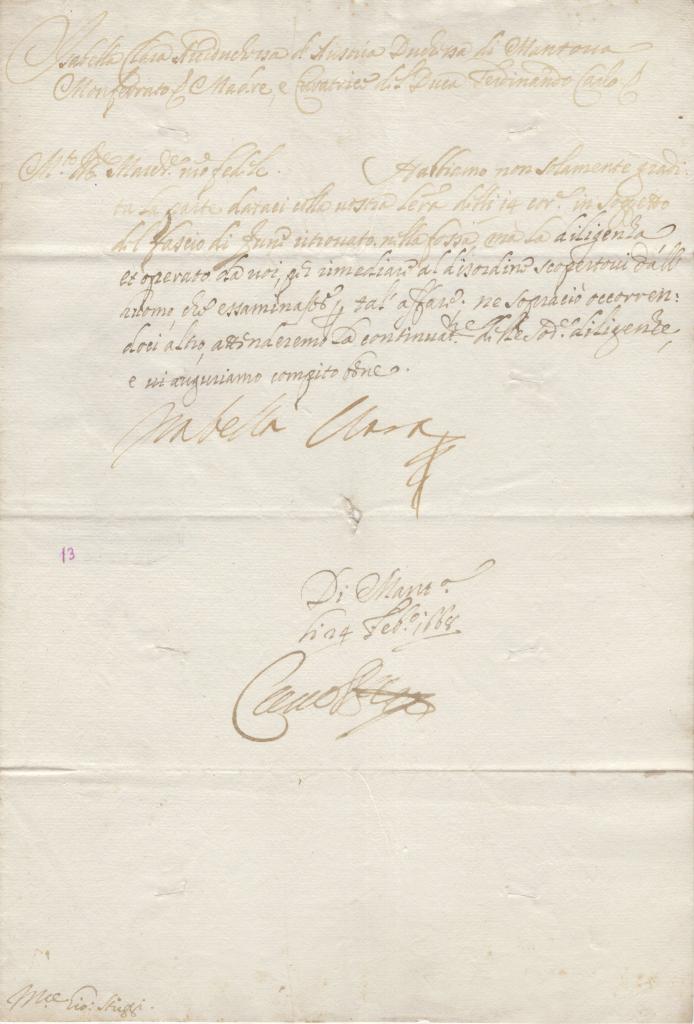 Isabella Clara Arciduchessa d'Austria Duchessa di Mantova
Monferrato & Madre, e Curatrice del Duca Ferdinando Carlo &
Habbiamo non solamente gradi-
ta la parte dataci colla vostra delli 14 corr. in soggetto
del fascio di ritrovato nella fossa, ma la diligenza
et operato da voi, per rimediare al disordine scopertovi dall'
huomo, che essaminaste tal' affare; ne sopraciò occorren-
doci altro, attenderemo la continuat.ne delle sod.e diligenze,
e vi auguriamo compito bene.
Isabella Clara
13
Di Mant.a
li 24 Feb.o 1668